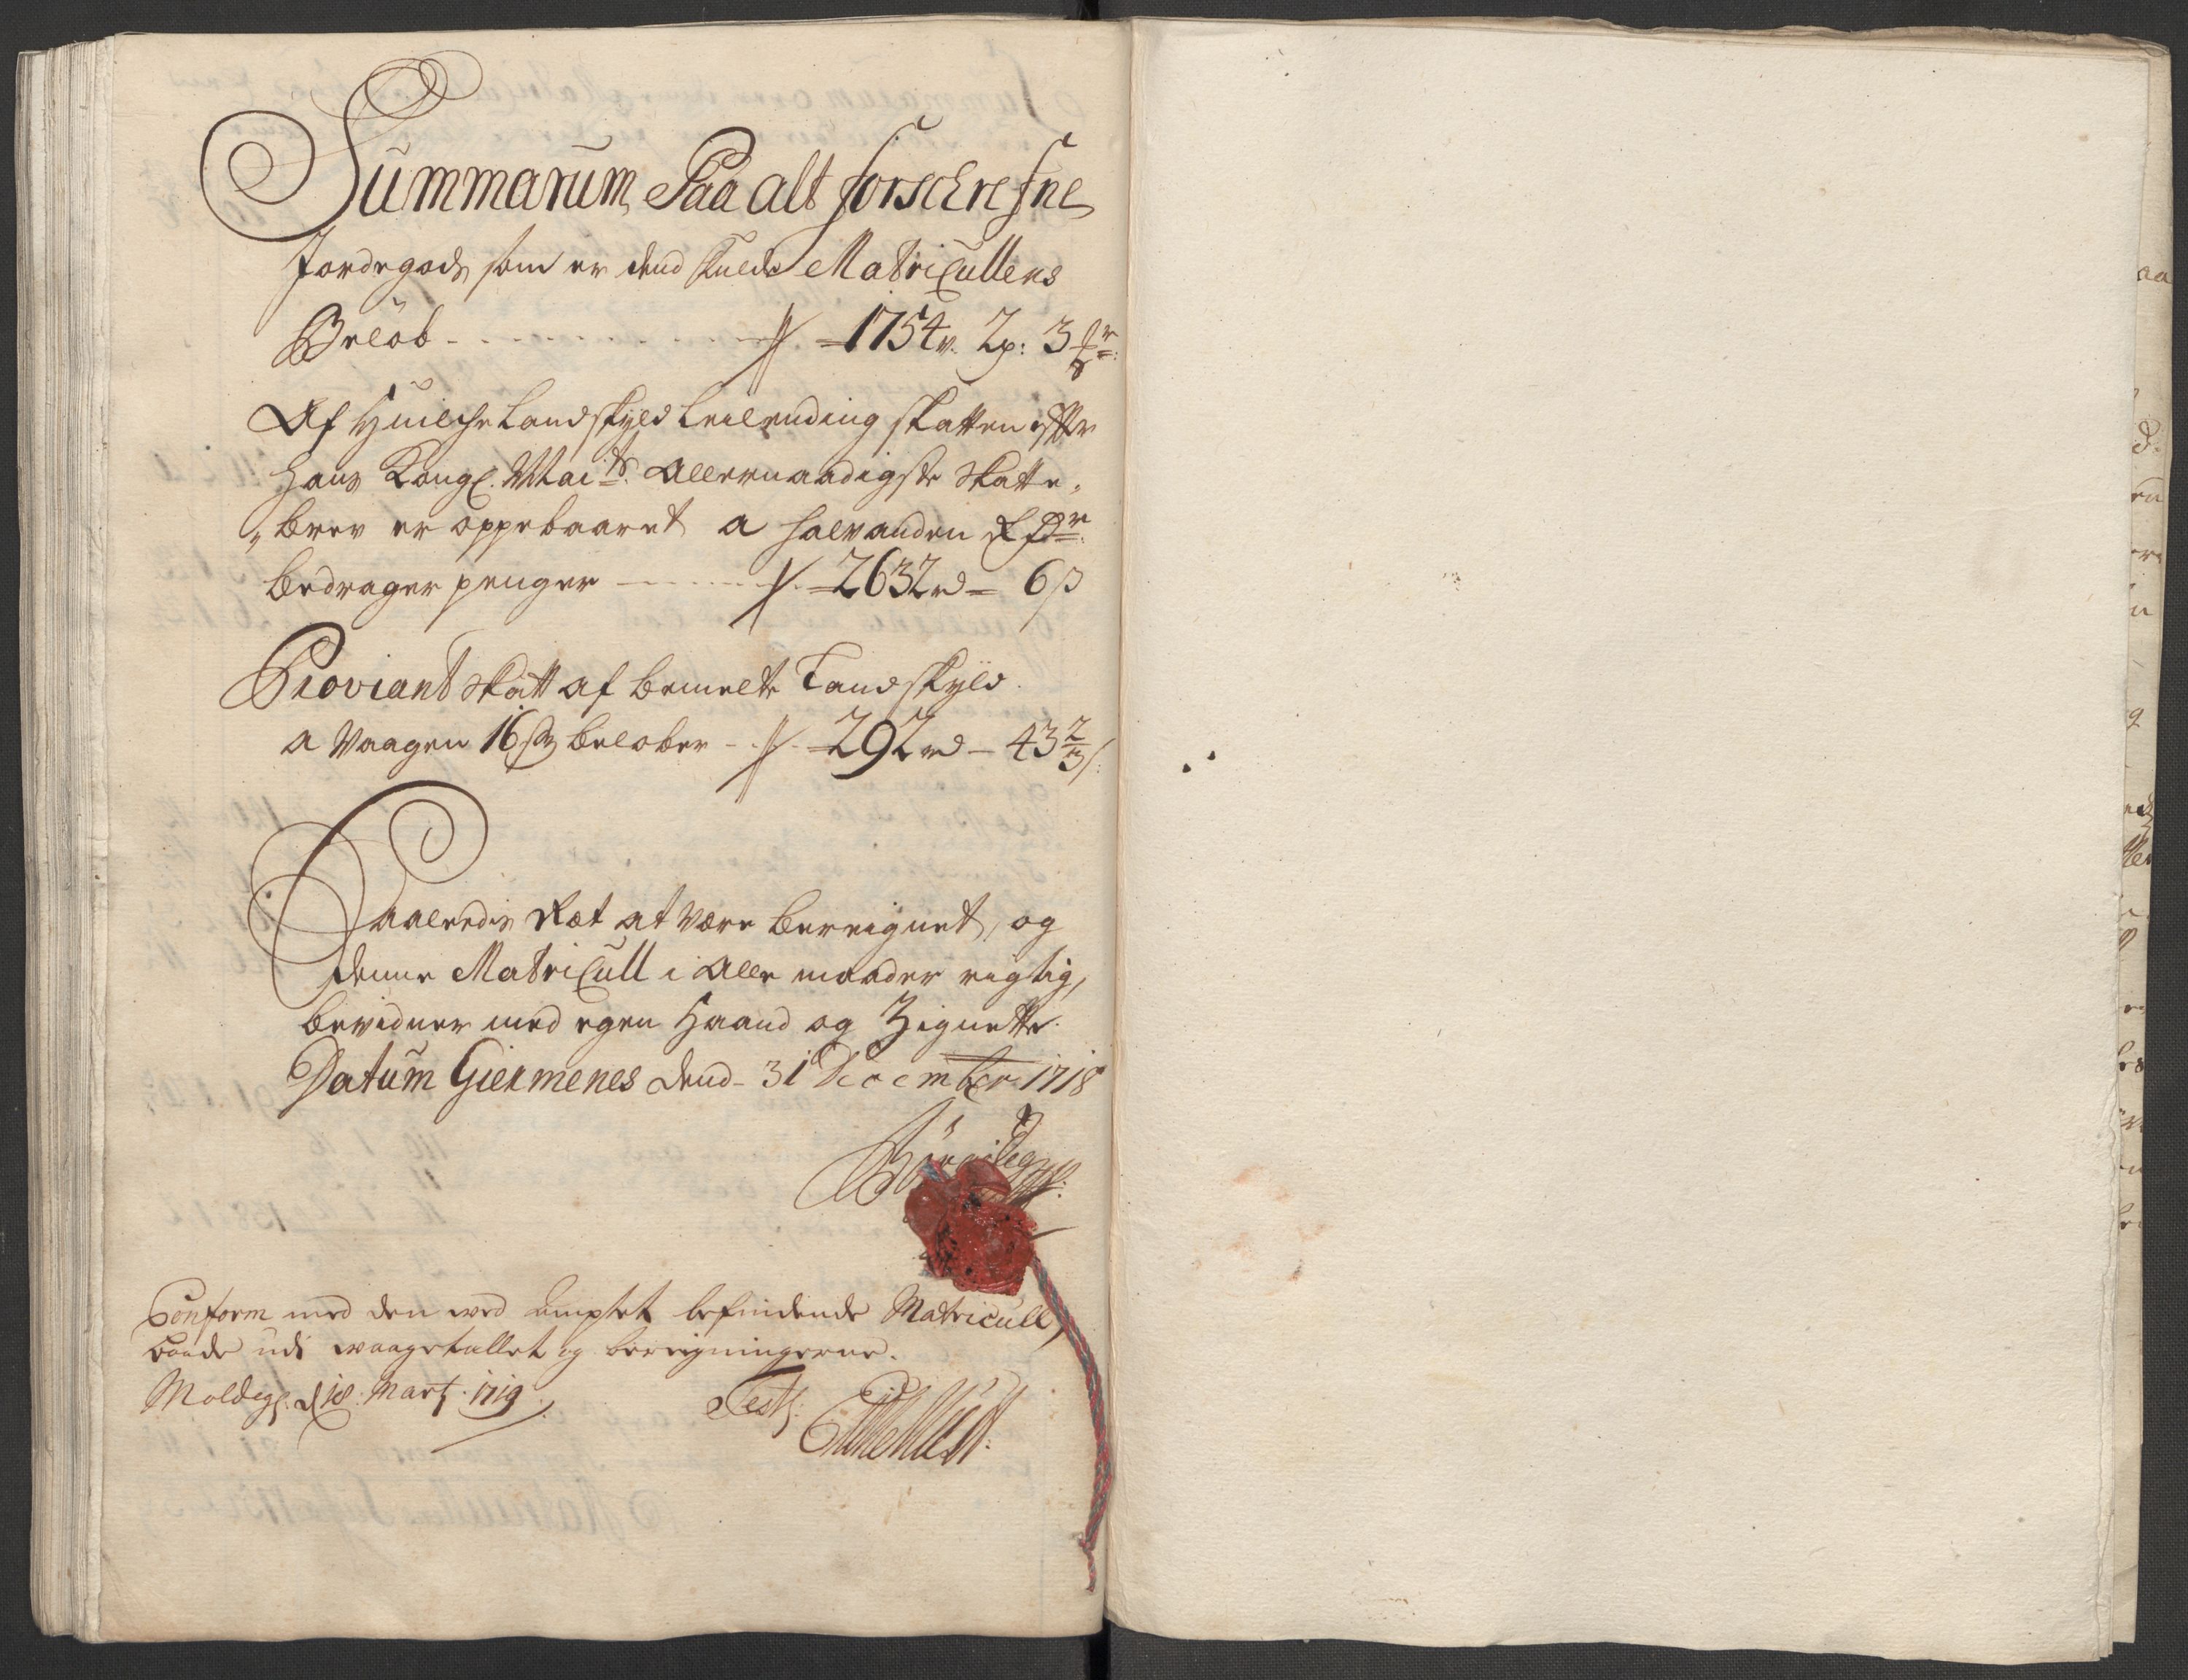 Summarum Paa alt forschrefne
Jordegods som er dend fulde Matricullens
Beløb - - - - - 1754 v. 2 p: 3 
Af Huilche Landskyld Leilending skatten efter
Hans Kongl. Maits. Allernaadigste Skatte-
brev er oppebaaret a halvanden
bedrager penger - - - 2632 rd - 6 s
Proviant Skatt af bemelte Landskyld
a Vaagen 16 s beløber - - 292 rd - 43 2/3 s:
Saaledis Ræt at være bereignet, og
denne Matricull i Alle maader rigtig,
bevidner med egen Haand og Zignette.
Datum Giermenes dend 31 December 1718
Conform med den ved Amptet befindende Matricull,
baade udi waagetallet og beregningerne.
Moldeg. d 18. Marty. 1719.
Test: